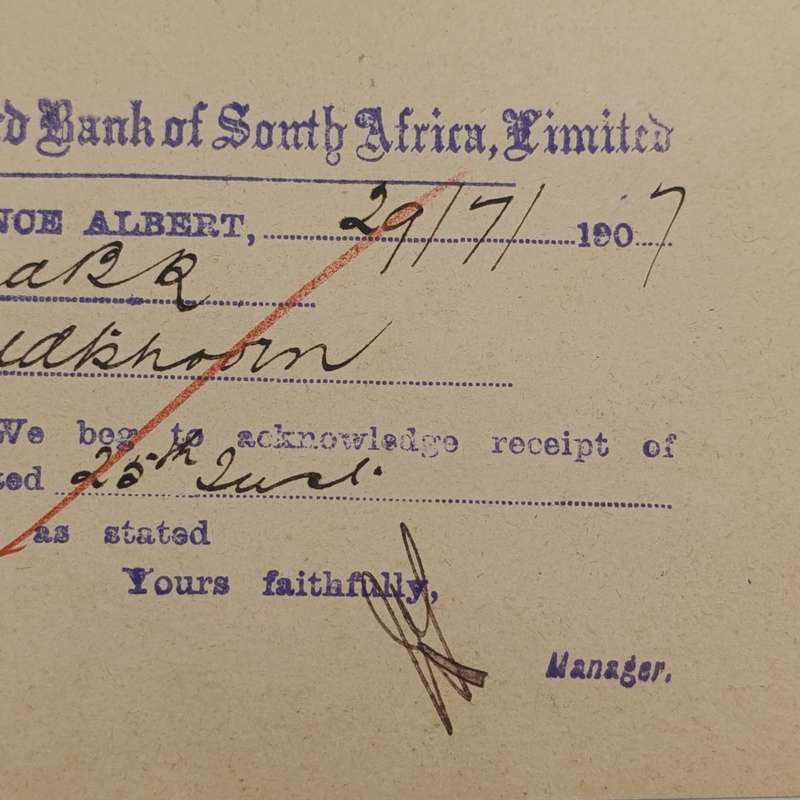 rd Bank of South Africa, Limited
NCE ALBERT, 29/7/ 1907
udtshoorn
We beg to acknowledge receipt of
ted 25th Inst.
as stated
Yours faithfully,
Manager.